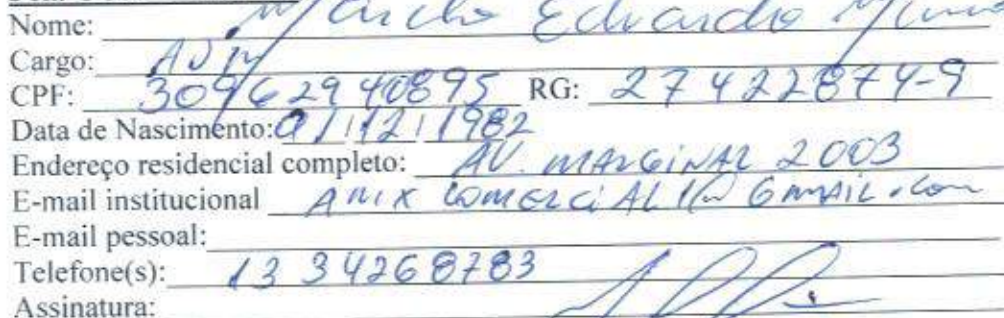 Nome: Marcelo Eduardo
Cargo: ADM
CPF: 30962940895 RG: 27422874-9
Data de Nascimento: 01/12/1982
Endereço residencial completo: AV. MARGINAL 2003
E-mail institucional AMIX COMERCIAL1@GMAIL.com
E-mail pessoal:
Telefone(s): 13 34268783
Assinatura: